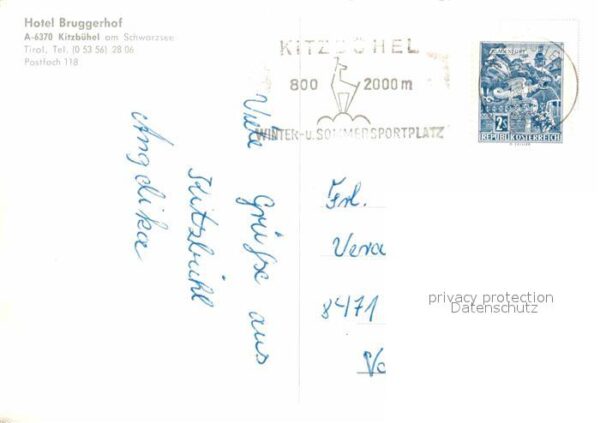 Hotel Bruggerhof
A-6370 Kitzbühel am Schwarzsee
Tirol, Tel. (0 53 56) 28 06
Postfach 118
KITZBÜHEL
800 2000m
WINTER-u. SOMMERSPORTPLATZ
2S
REPUBLIK ÖSTERREICH
Viele Grüße aus
Kitzbühl
Angelika
Frl.
Vera
8471
privacy protection
Datenschutz